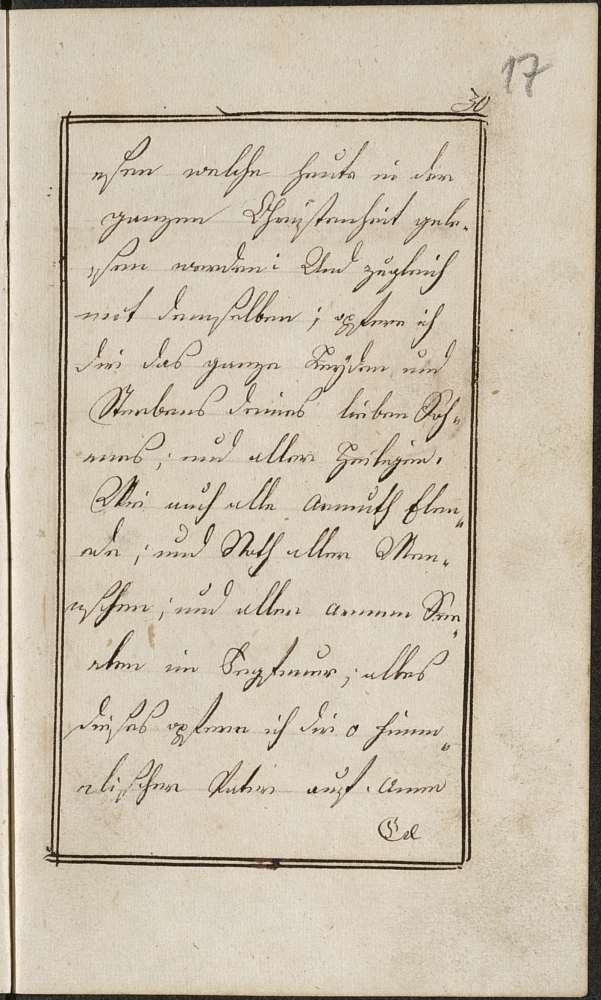 17
30
esen welche heute in der
ganzen Christenheit gele¬
esen werden: Und zugleich
mit demselben; opfere ich
dir das ganze Leyden und
Sterbens deines lieben Soh„
nnes; und aller Heiligen.
Wei auch alle Armuth Elen„
nde; und Noth aller Men¬
nschen; und aller armen See„
elen im Fegfeuer; alles
dieses opfere ich dir o himm„
elischer Vater auf. Amen